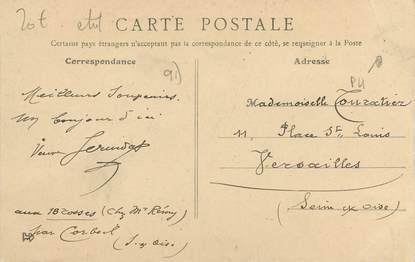 CARTE POSTALE
Certains pays étrangers n'acceptant pas la correspondance de ce côté, se renseigner à la Poste
Correspondance
Adresse
91)
PU
Meilleurs Souvenirs.
Un bonjour d'ici
Mademoiselle
11. Place St Louis
Versailles
(Seine et Oise)
aux (Chez Mr Rémy)
par Corbeil (S. et Oise)